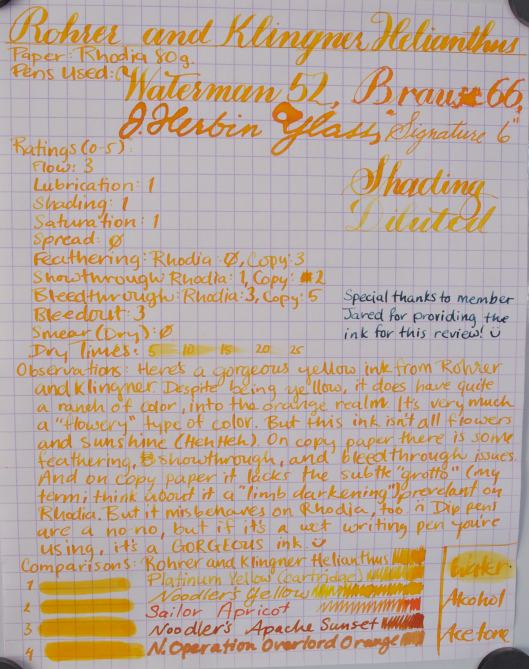 Rohrer and Klingner Helianthus
Paper: Rhodia 80g.
Pens Used:
Waterman 52, Brause 66,
J. Herbin Glass, Signature 6"
Ratings (0-5):
Flow: 3
Lubrication: 1
Shading: 1
Saturation: 1
Spread: Ø
Feathering: Rhodia: Ø, Copy: 3
Showthrough Rhodia: 1, Copy: 2
Bleedthrough: Rhodia: 3, Copy: 5
Bleedout: 3
Smear (Dry): Ø
Dry Times: 5 10 15 20 25
Shading
Diluted
Special thanks to member
Jared for providing the
ink for this review! ü
Observations: Here's a gorgeous yellow ink from Rohrer
and Klingner Despite being yellow, it does have quite
a ranch of color, into the orange realm. It's very much
a "flowery" type of color. But this ink isn't all flowers
and sunshine (HehHeh). On copy paper there is some
feathering, showthrough, and bleedthrough issues.
And on copy paper it lacks the subtle "grotto" (my
term; think about it a "limb darkening") prevelant on
Rhodia. But it misbehaves on Rhodia, too. Dip pens
are a no-no, but if it's a wet writing pen you're
using, it's a GORGEOUS ink ü
Comparisons: Rohrer and Klingner Helianthus
Platinum Yellow (cartridge)
Noodler's Yellow
Sailor Apricot
Noodler's Apache Sunset
N. Operation Overlord Orange
1
2
3
4
Water
Alcohol
Acetone